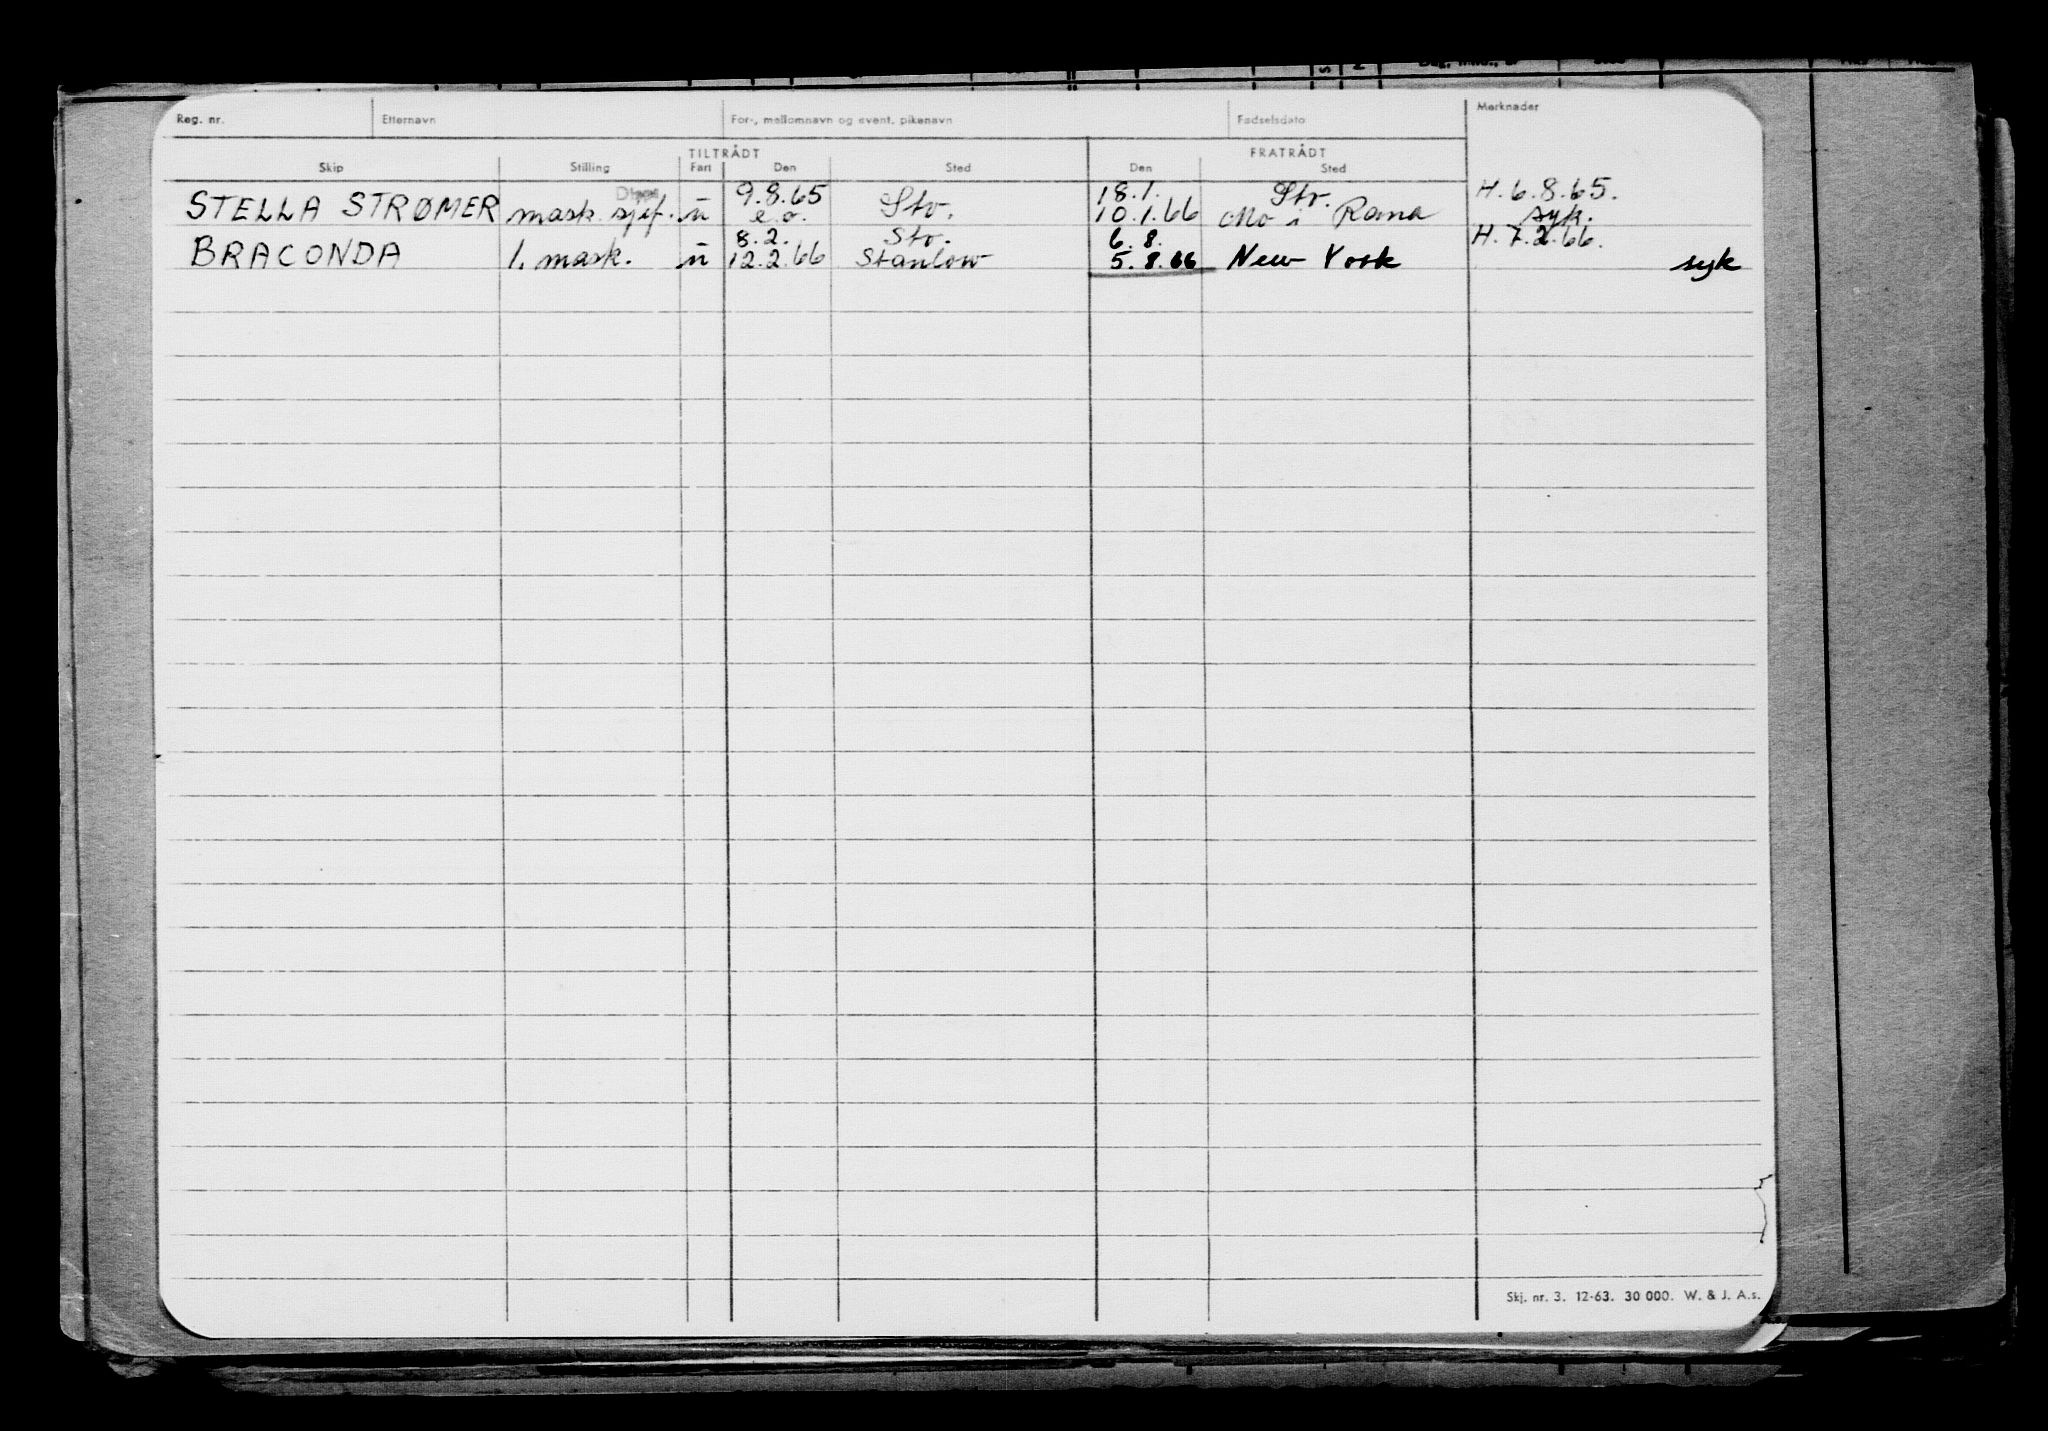 Reg. nr. Etternavn For-, mellomnavn og event. pikenavn Fødselsdato Merknader
TILTRÅDT FRATRÅDT
Skip Stilling Fart Den Sted Den Sted
9.8.65 18.1. Stv. H. 6.8.65.
STELLA STRØMER mask. sjef. u e.o. Stv. 10.1.66 Mo i Rana syk.
8.2. Stv. 6.8. H. 7.2.66.
BRACONDA 1. mask. u 12.2.66 Stanlow 5.8.66 New York syk
Skj. nr. 3. 12-63. 30 000. W. & J. A.s.